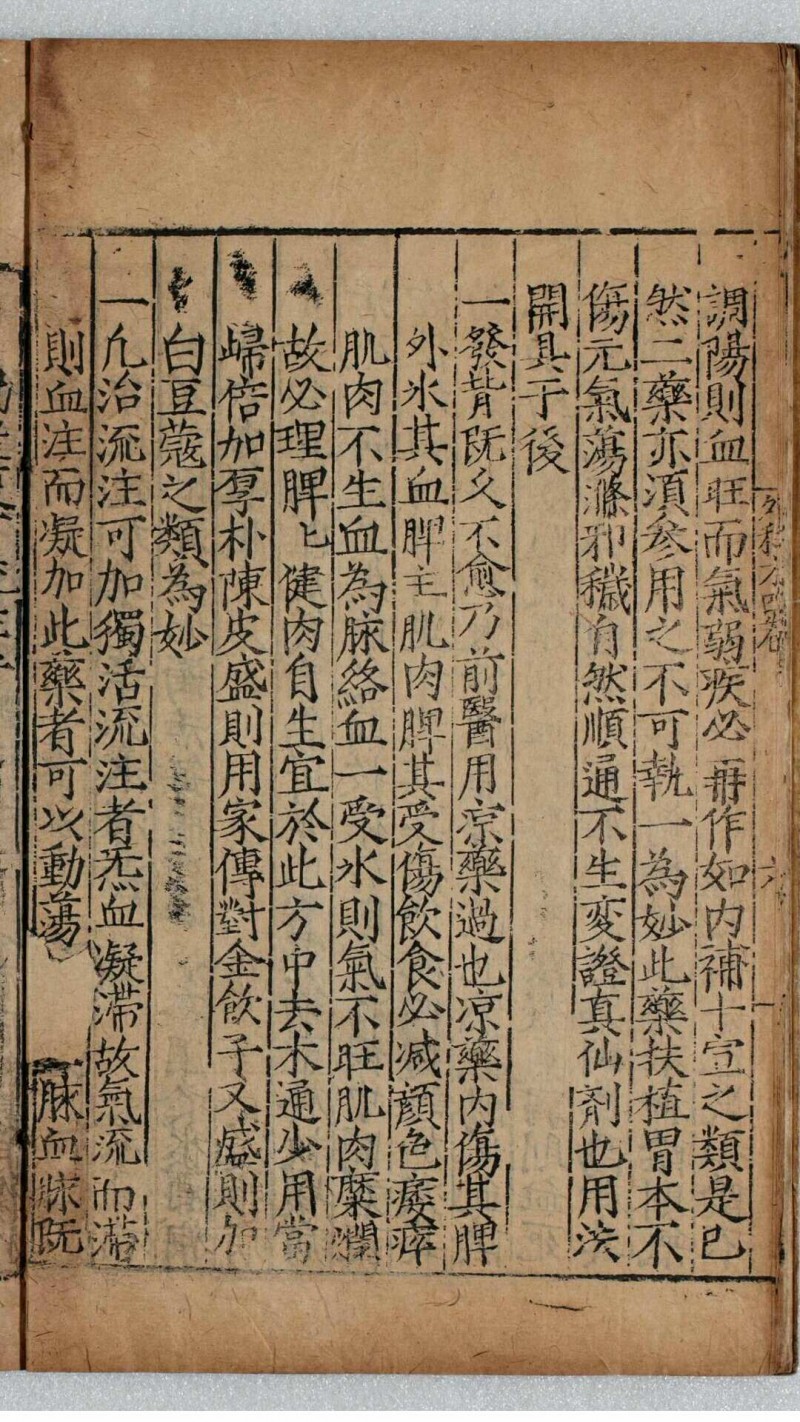 調陽則血旺而氣弱疾必再作如内補十宣之類是已
然二藥亦湏參用之不可執一為妙此藥扶植胃本不
傷元氣蕩滌邪穢自然順通不生変證真仙剤也用法
開具于後
一發背既久不愈乃前醫用凉藥過也凉藥内傷其脾
外氷其血脾主肌肉脾其受傷飲食必减顔色痿瘁
肌肉不生血為脉絡血一受氷則氣不旺肌肉糜爛
故必理脾〻健肉自生宜於此方中去木通少用當
歸倍加厚朴陳皮盛則用家傳對金飲子又盛則加
白豆蔻之類為妙
一凢治流注可加獨活流注者炁血凝滞故氣流而滞
則血注而凝加此藥者可以動蕩 脉血脉既